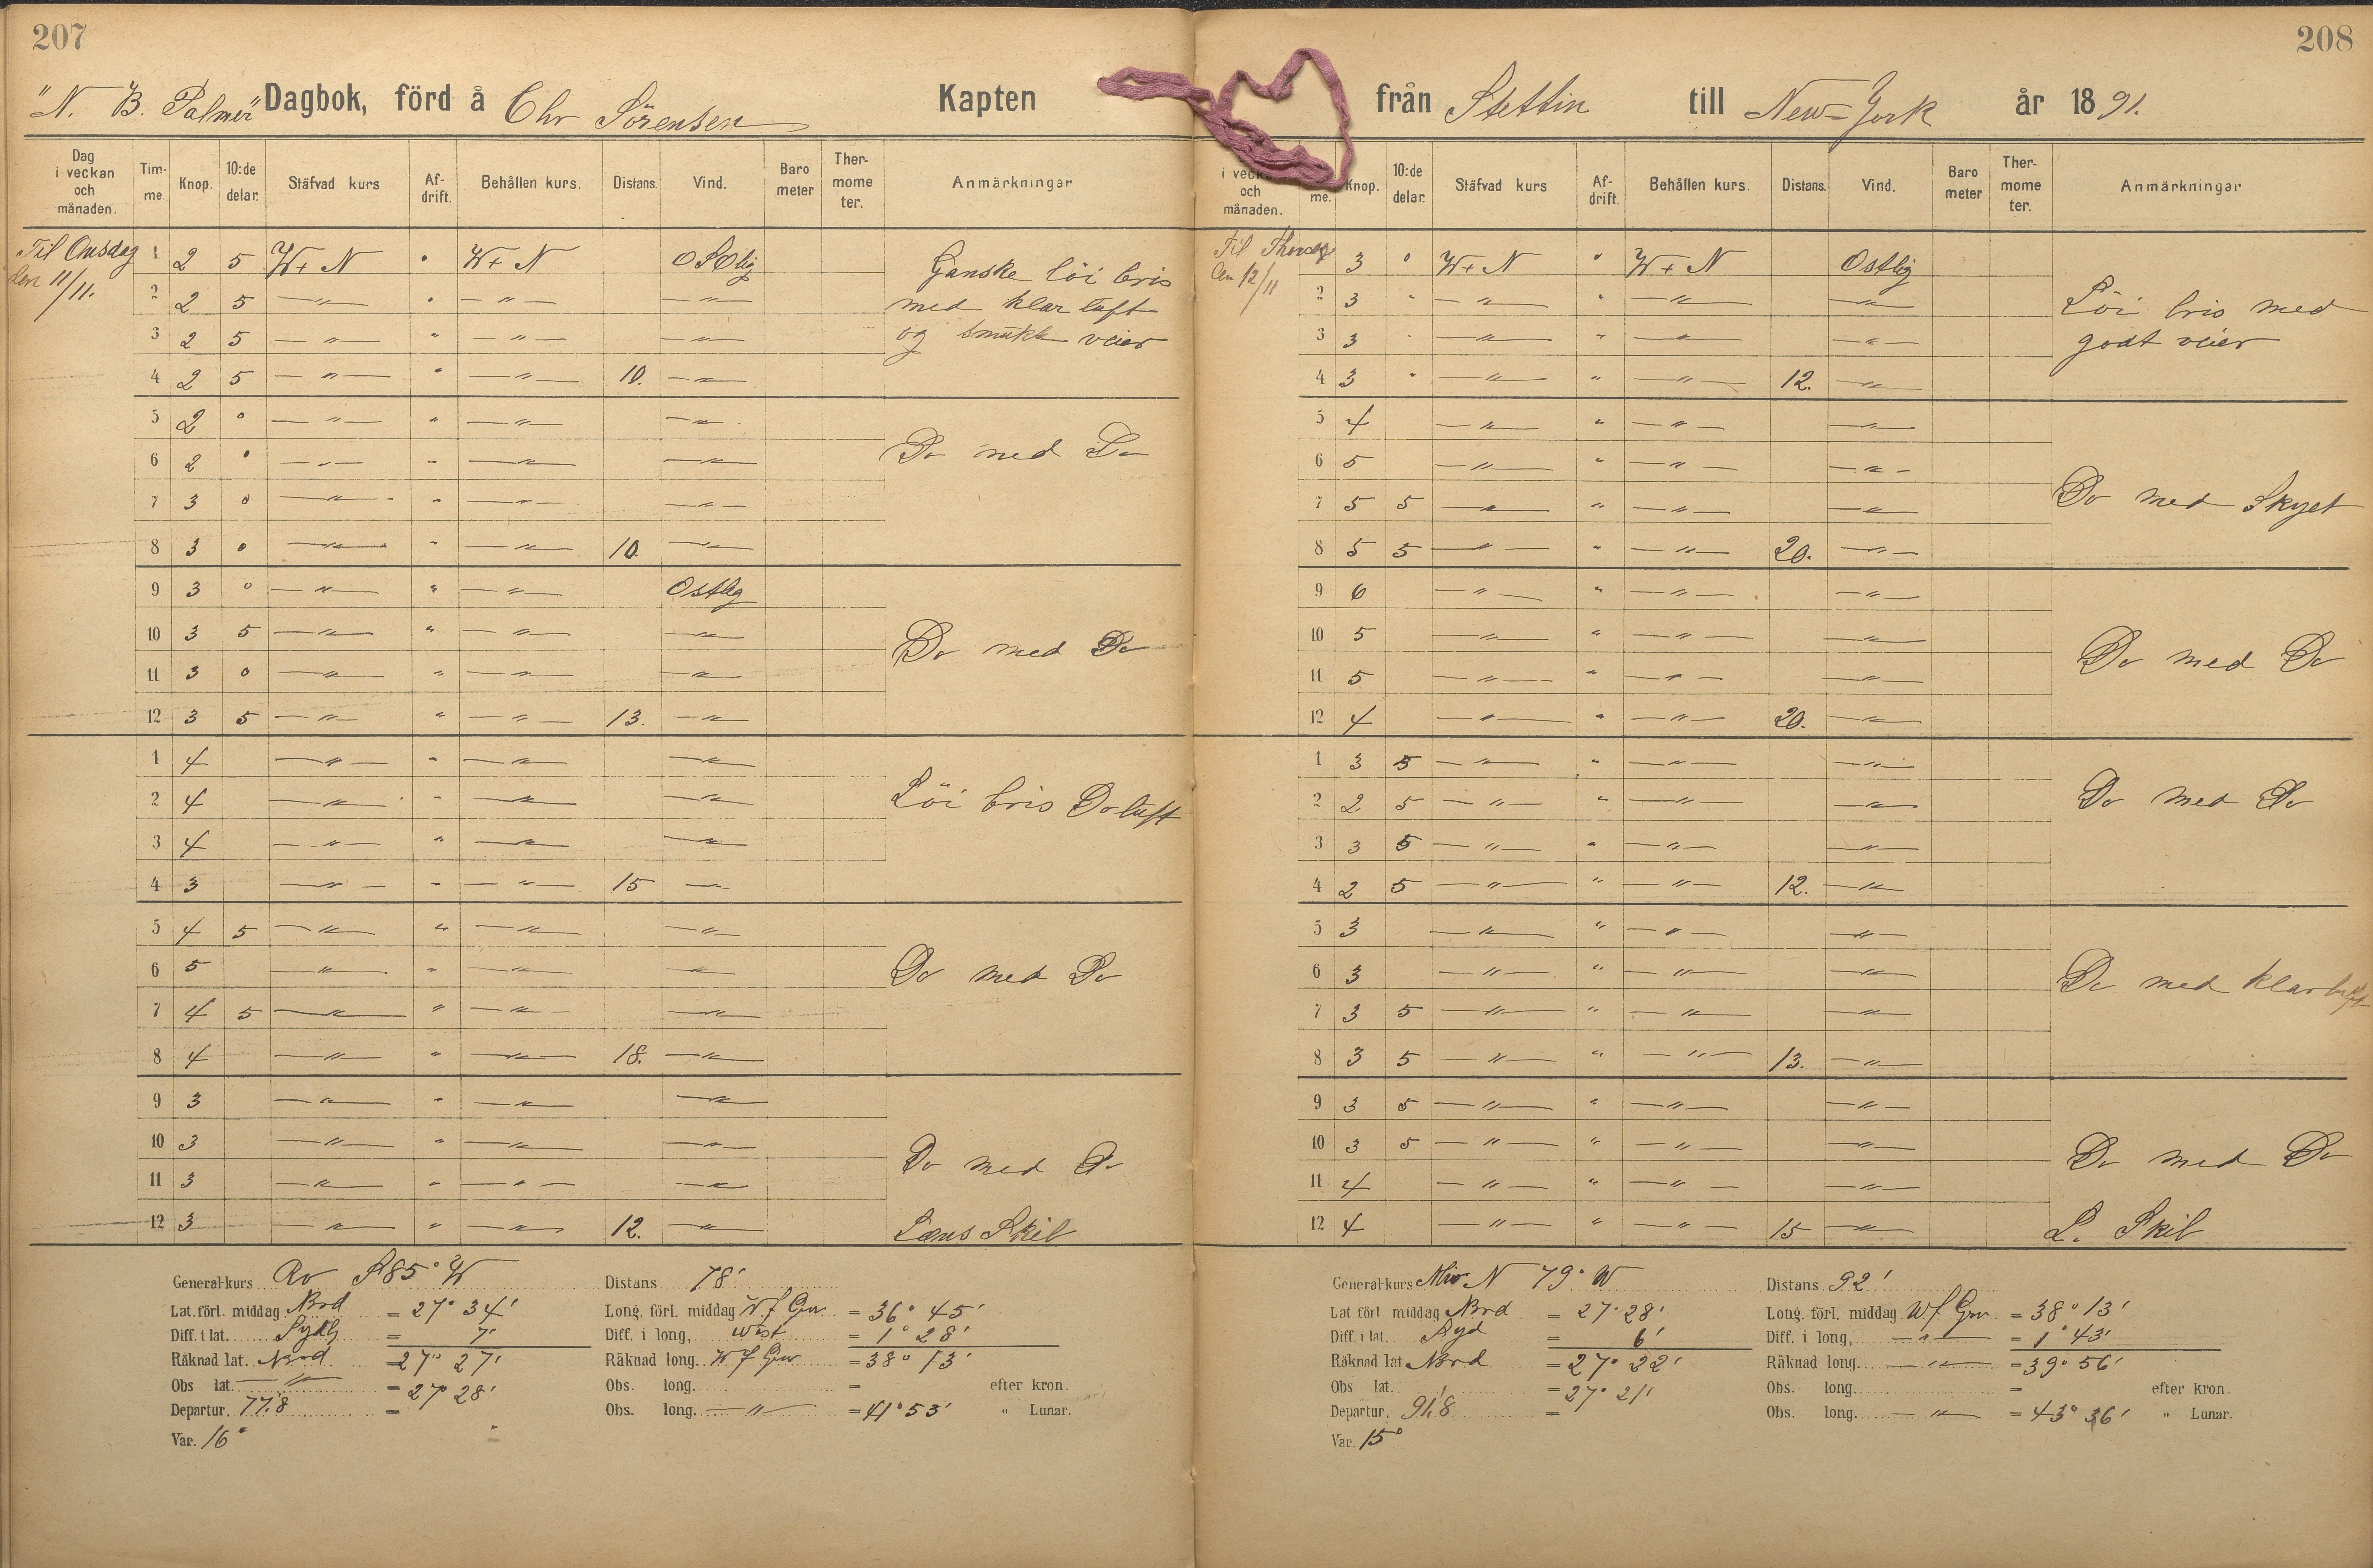 207
"N. B. Palmer" Dagbok, förd å Chr Sörensen Kapten
Dag i veckan och månaden. Tim-me. Knop. 10:de delar. Stäfvad kurs Af-drift. Behållen kurs. Distans. Vind. Baro meter Ther-mome ter. Anmärkningar
Til Onsdag den 11/11.
1 2 5 W t N " W t N OSOlig
2 2 5 — " — " — " — — " —
3 2 5 — " — " — " — — " —
4 2 5 — " — " — " — 10. — " —
Ganske löi bris
med klar luft
og smukt veier
5 2 0 — " — " — " — — " —
6 2 0 — " — " — " — — " —
7 3 0 — " — " — " — — " —
8 3 0 — " — " — " — 10. — " —
Do med Do
9 3 0 — " — " — " — Ostlig
10 3 5 — " — " — " — — " —
11 3 0 — " — " — " — — " —
12 3 5 — " — " — " — 13. — " —
Do med Do
1 4 — " — " — " — — " —
2 4 — " — " — " — — " —
3 4 — " — " — " — — " —
4 3 — " — " — " — 15 — " —
Löi bris Do luft
5 4 5 — " — " — " — — " —
6 5 — " — " — " — — " —
7 4 5 — " — " — " — — " —
8 4 — " — " — " — 18. — " —
Do med Do
9 3 — " — " — " — — " —
10 3 — " — " — " — — " —
11 3 — " — " — " — — " —
12 3 — " — " — " — 12. — " —
Do med Do
Læns Skib
General-kurs Rv S 85° W
Lat. förl. middag Nord = 27° 34'
Diff. i lat. Sydlig = 7'
Räknad lat. Nord = 27° 27'
Obs lat. — " — = 27° 28'
Departur. 77,8 =
Var. 16°
Distans 78'
Long. förl. middag W f Grw = 36° 45'
Diff. i long, West = 1° 28'
Räknad long. W f Grw = 38° 13'
Obs. long. = efter kron.
Obs. long. — " — = 41° 53' " Lunar.
208
från Stettin till New-York år 1891.
i veckan och månaden. me. Knop. 10:de delar. Stäfvad kurs Af-drift. Behållen kurs. Distans. Vind. Baro meter Ther-mome ter. Anmärkningar
Til Thorsdag den 12/11
1 3 " W t N " W t N Ostlig
2 3 " — " — " — " — — " —
3 3 " — " — " — " — — " —
4 3 " — " — " — " — 12. — " —
Löi bris med
godt veier
5 4 — " — " — " — — " —
6 5 — " — " — " — — " —
7 5 5 — " — " — " — — " —
8 5 5 — " — " — " — 20. — " —
Do med Skyet
9 6 — " — " — " — — " —
10 5 — " — " — " — — " —
11 5 — " — " — " — — " —
12 4 — " — " — " — 20. — " —
Do med Do
1 3 5 — " — " — " — — " —
2 2 5 — " — " — " — — " —
3 3 5 — " — " — " — — " —
4 2 5 — " — " — " — 12. — " —
Do med Do
5 3 — " — " — " — — " —
6 3 — " — " — " — — " —
7 3 5 — " — " — " — — " —
8 3 5 — " — " — " — 13. — " —
Do med klar luft
9 3 5 — " — " — " — — " —
10 3 5 — " — " — " — — " —
11 4 — " — " — " — — " —
12 4 — " — " — " — 15 — " —
Do med Do
L. Skib
General-kurs N 79° W
Lat förl middag Nord = 27° 28'
Diff. i lat. Syd = 6'
Räknad lat Nord = 27° 22'
Obs lat. = 27° 21'
Departur. 91,8 =
Var. 15°
Distans 92'
Long. förl. middag W f Grw = 38° 13'
Diff. i long, — " — = 1° 43'
Räknad long. — " — = 39° 56'
Obs. long. = efter kron.
Obs. long. — " — = 43° 36' " Lunar.